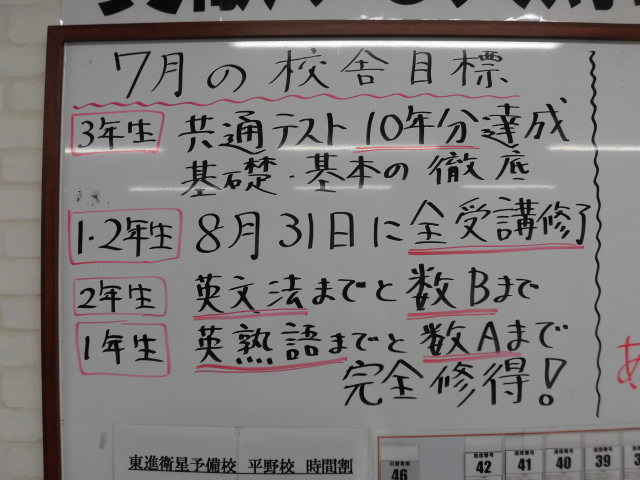 7月の校舎目標
3年生 共通テスト10年分達成
基礎・基本の徹底
1・2年生 8月31日に全受講修了
2年生 英文法までと数Bまで
1年生 英熟語までと数Aまで
完全修得!
東進衛星予備校 平野校 時間割
46 42 41 40 39